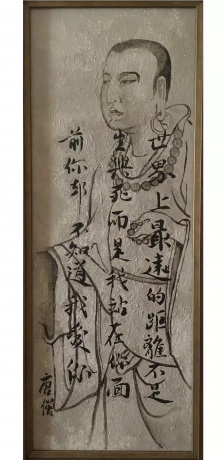 世界上最遠的距離不是
生與死而是我站在你面
前你卻不知道我愛你
唐僧